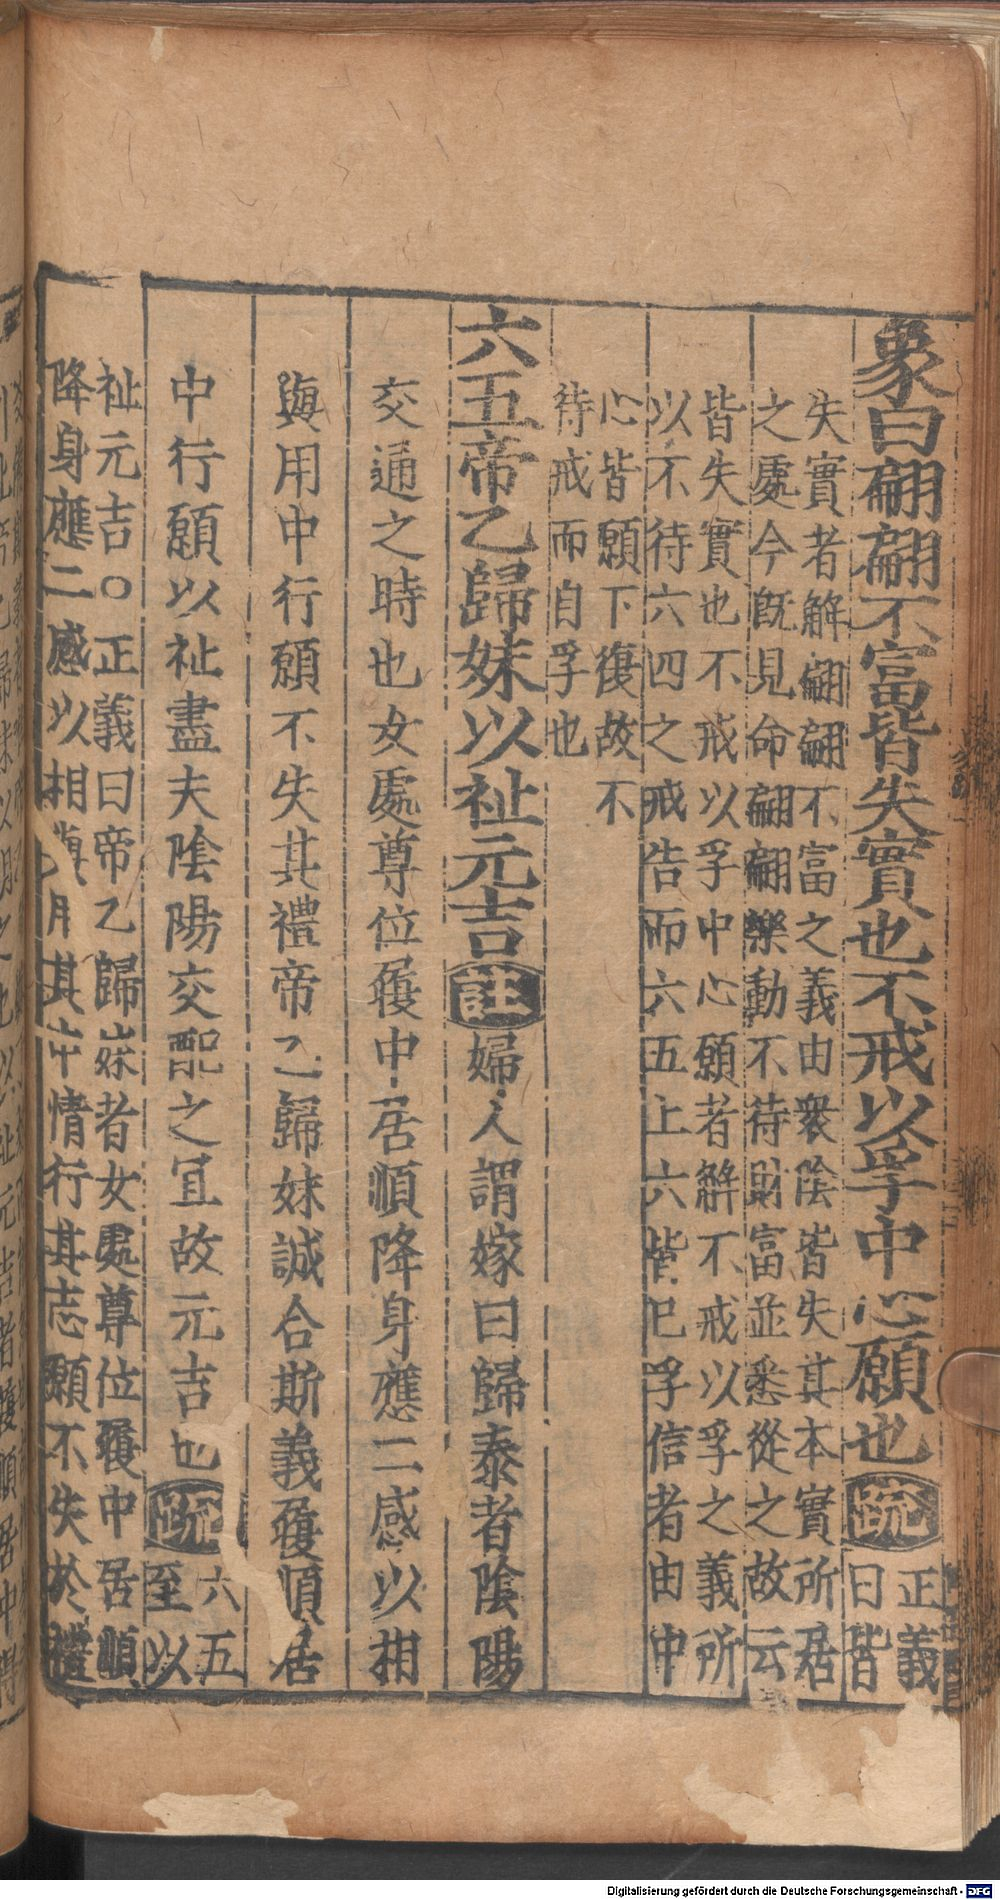 象曰翩翩不富皆失實也不戒以孚中心願也疏正義
曰皆
失實者解翩翩不富之義由衆陰皆失其本實所居
之處今旣見命翩翩樂動不待財富並悉從之故云
皆失實也不戒以孚中心願者解不戒以孚之義所
以不待六四之戒告而六五上六皆已孚信者由中
心皆願下復故不
待戒而自孚也
六五帝乙歸妹以祉元吉註婦人謂嫁曰歸泰者陰陽
交通之時也女處尊位履中居順降身應二感以相
與用中行願不失其禮帝乙歸妹誠合斯義履順居
中行願以祉盡夫陰陽交配之宜故元吉也疏六五
至以
祉元吉○正義曰帝乙歸妹者女處尊位履中居順
降身應二感以相與用其中情行其志願不失於禮
Digitalisierung gefördert durch die Deutsche Forschungsgemeinschaft - DFG